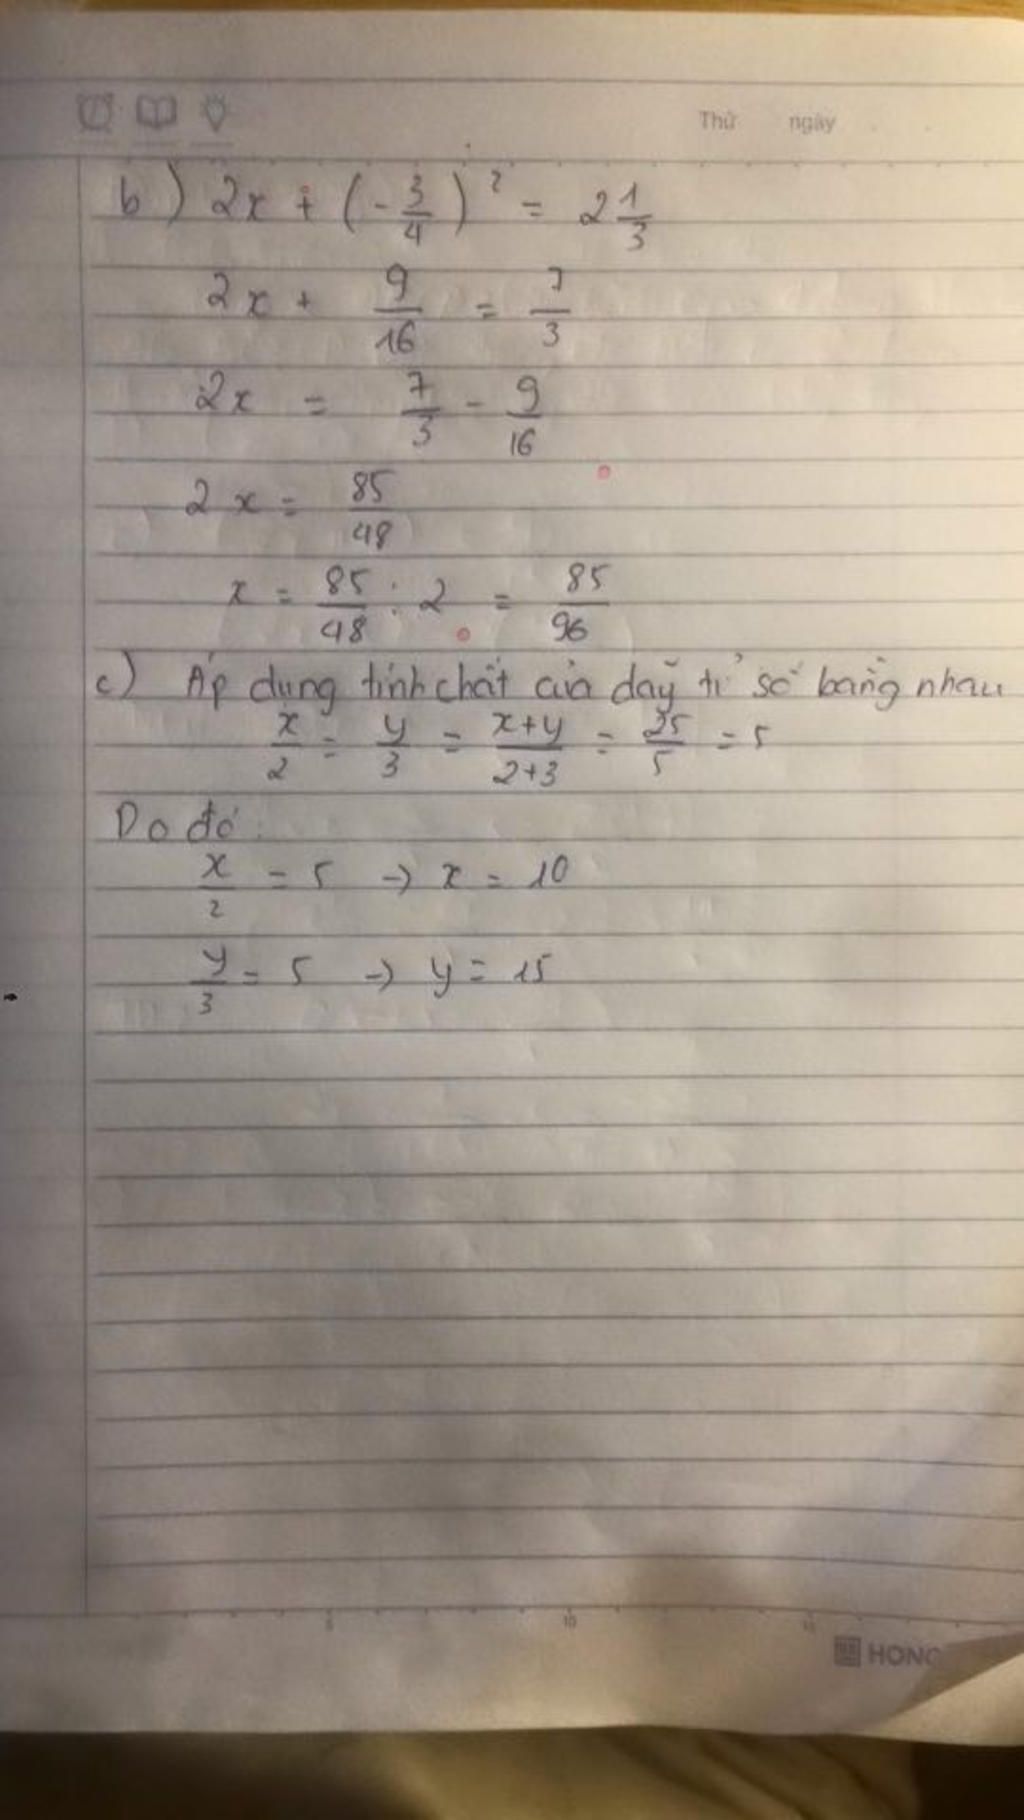 Thứ ngày
b) 2x + (-3/4)² = 2 1/3
2x + 9/16 = 7/3
2x = 7/3 - 9/16
2x = 85/48
x = 85/48 : 2 = 85/96
c) Áp dụng tính chất của dãy tỉ số bằng nhau
x/2 = y/3 = x+y/2+3 = 25/5 = 5
Do đó:
x/2 = 5 → x = 10
y/3 = 5 → y = 15
5 10 15
HONG